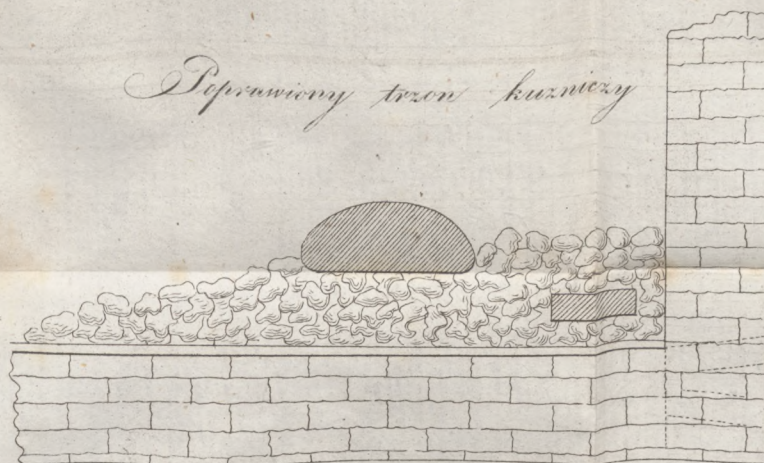 Poprawiony trzon kuzniczy